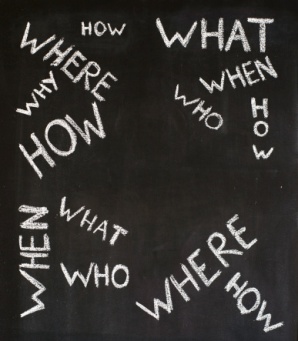 HOW
WHERE
WHY
HOW
WHAT
WHEN
WHO
HOW
WHEN
WHAT
WHO
WHERE
HOW